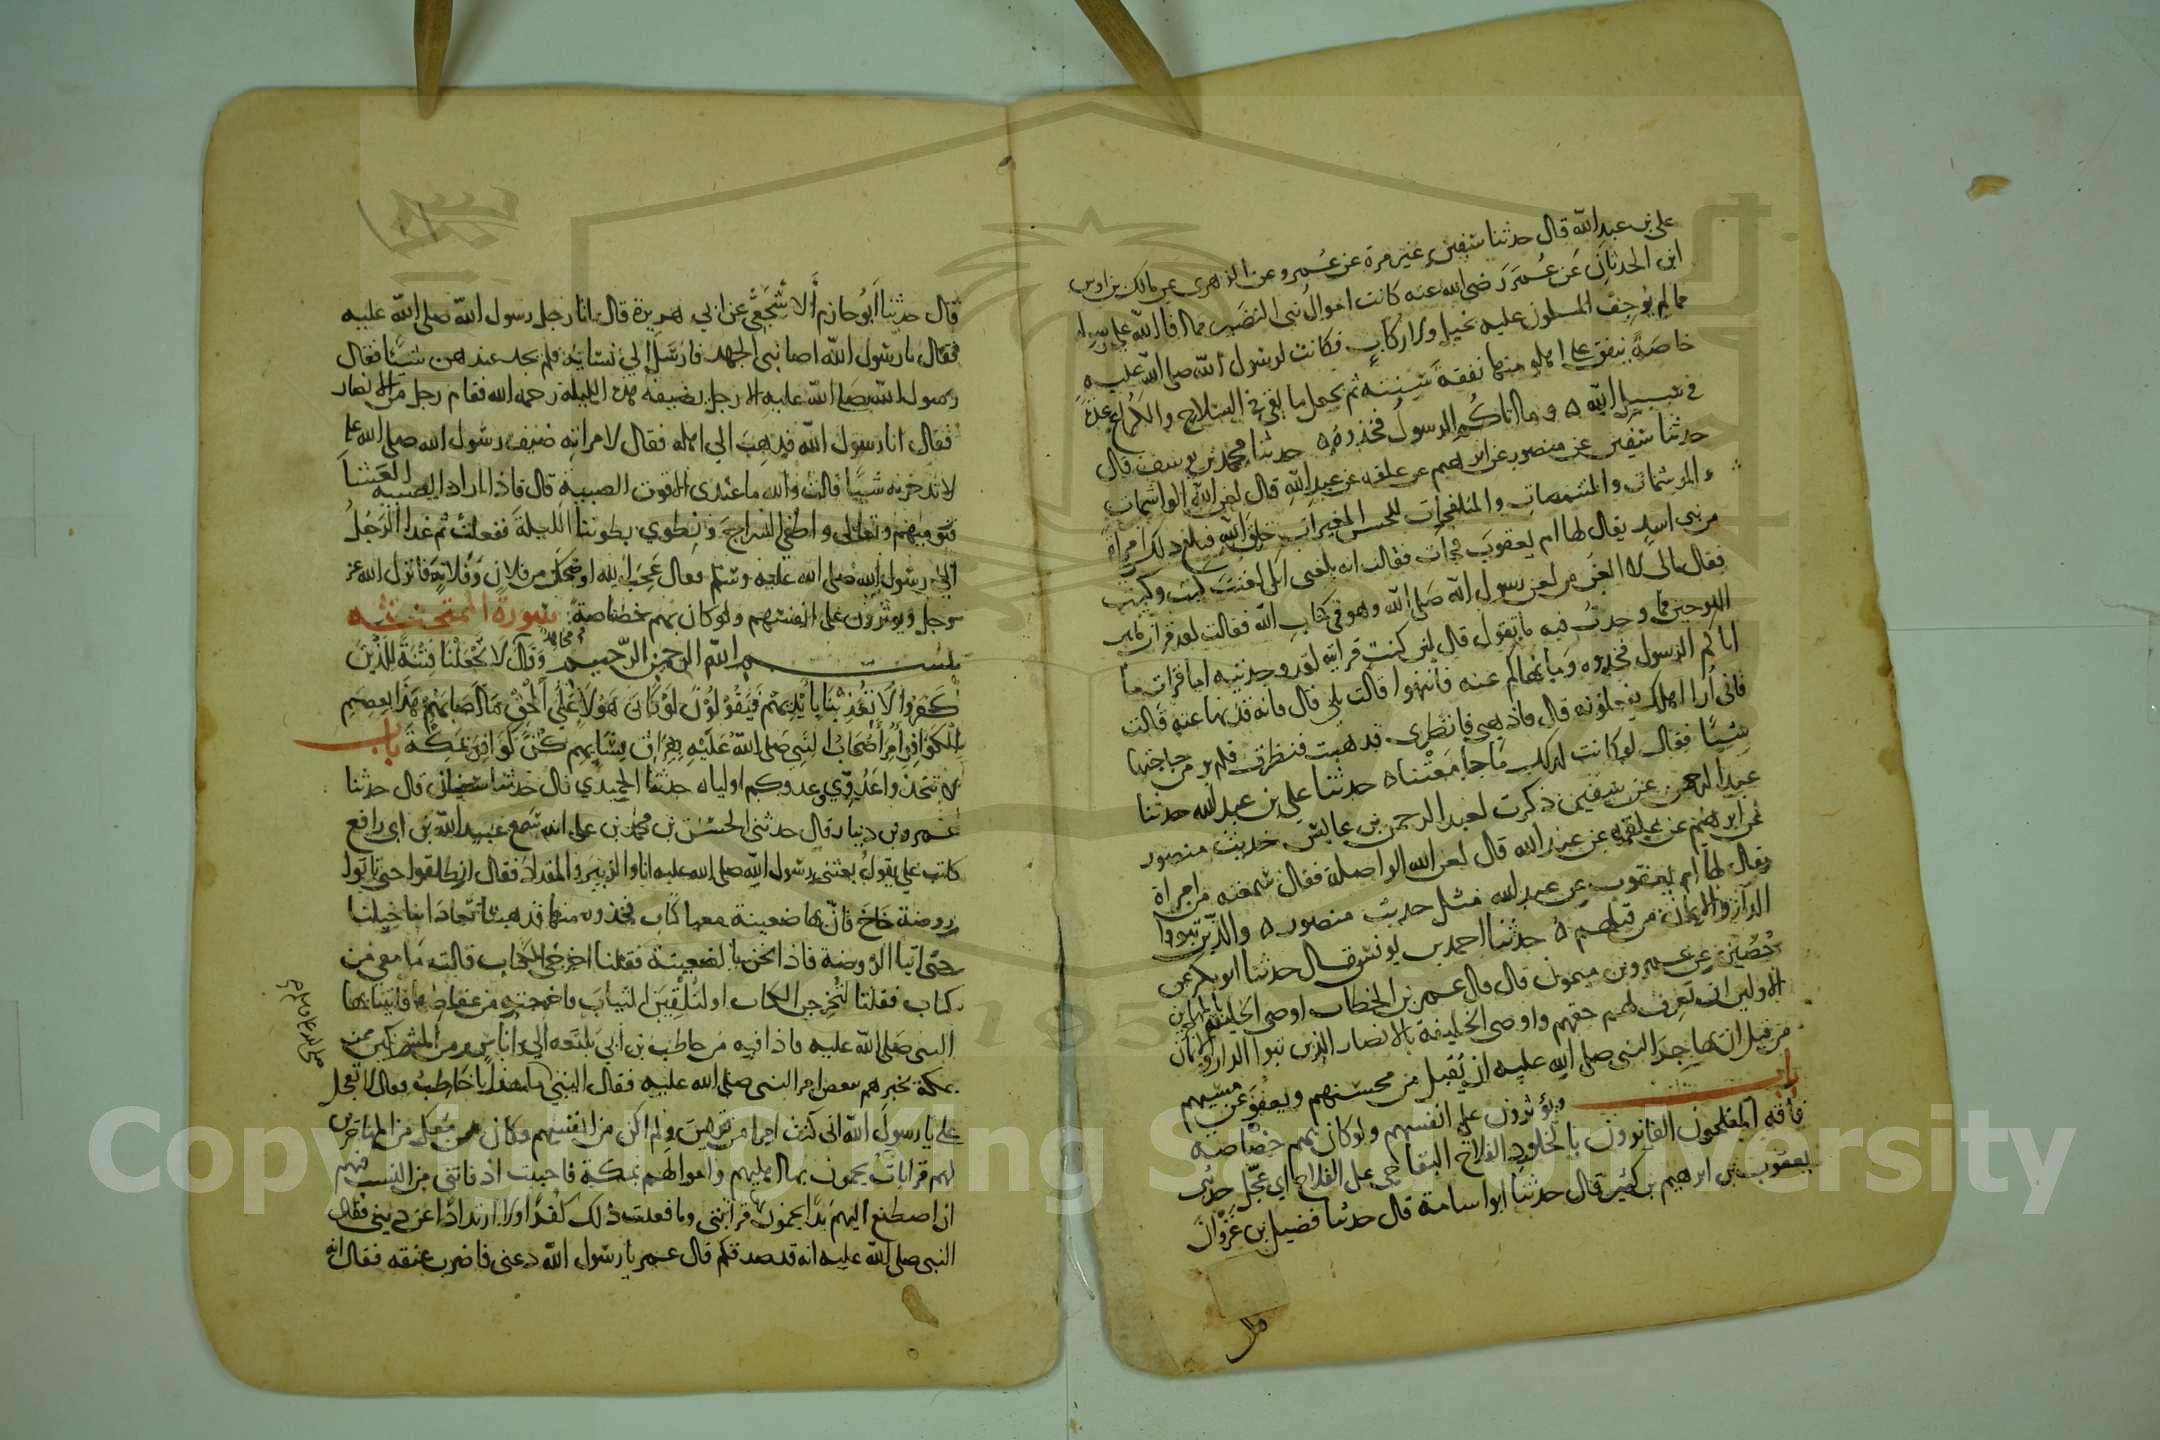 علي بن عبد الله قال حدثنا سفين غير مرة عن عمرو عن الزهري عن مالك بن اوس
ابن الحدثان عن عمر رضي الله عنه كانت اموال بني النضير مما افا الله على رسوله
مما لم يوجف المسلمون عليه بخيل ولا ركاب فكانت لرسول الله صلى الله عليه
خاصة ينفق على اهله منها نفقة سنته ثم يجعل ما بقي في السلاح والكراع عدة
في سبيل الله ه وما اتاكم الرسول فخذوه ه حدثنا محمد بن يوسف قال
حدثنا سفين عن منصور عن ابرهيم عن علقمة عن عبد الله قال لعن الله الواشمات
والموتشمات والمتنمصات والمتفلجات للحسن المغيرات خلق الله فبلغ ذلك امراة
من بني اسد يقال لها ام يعقوب فجات فقالت انه بلغني انك لعنت كيت وكيت
فقال مالي لا العن من لعن رسول الله صلى الله وهو في كتاب الله فقالت لقد قرات ما بين
اللوحين فما وجدت فيه ما تقول قال لئن كنت قراتيه لقد وجدتيه اما قرات ما
اتاكم الرسول فخذوه وما نهاكم عنه فانتهوا قالت بلى قال فانه قد نها عنه قالت
فاني ارا اهلك يفعلونه قال فاذهبي فانظري فذهبت فنظرت فلم تر من حاجتها
شيئا فقال لو كانت كذلك ما جامعتنا ه حدثنا علي بن عبد الله حدثنا
عبد الرحمن عن سفين ذكرت لعبد الرحمن بن عابس حديث منصور
عن ابرهيم عن علقمة عن عبد الله قال لعن الله الواصلة فقال سمعته من امراة
يقال لها ام يعقوب عن عبد الله مثل حديث منصور ه والذين تبووا
الدار والايمان من قبلهم ه حدثنا احمد بن يونس قال حدثنا ابو بكر عن
حصين عن عمرو بن ميمون قال قال عمر بن الخطاب اوصي الخليفة بالمهاجرين
الاولين ان تعرف لهم حقهم واوصي الخليفة بالانصار الذين تبوا الدار والايمان
من قبل ان يهاجر النبي صلى الله عليه ان يقبل من محسنهم ويعفو عن مسيهم
باب ويؤثرون على انفسهم ولو كان بهم خصاصة
فاقة المفلحون الفائزون بالخلود الفلاح البقا حي على الفلاح اي عجل حدثني
يعقوب بن ابرهيم بن كثير قال حدثنا ابو اسامة قال حدثنا فضيل بن غزوان
قال
قال حدثنا ابو حازم الاشجعي عن ابي هريرة قال اتا رجل رسول الله صلى الله عليه
فقال يا رسول الله اصابني الجهد فارسل الى نسائه فلم يجد عندهن شيئا فقال
رسول الله صلى الله عليه الا رجل يضيفه هذه الليلة رحمه الله فقام رجل من الانصار
فقال انا رسول الله فذهب الى اهله فقال لامراته ضيف رسول الله صلى الله عليه
لا تدخريه شيئا قالت والله ما عندي الا قوت الصبية قال فاذا اراد الصبية العشا
فنوميهم وتعالي واطفي السراج ونطوي بطوننا الليلة ففعلت ثم غدا الرجل
الى رسول الله صلى الله عليه وسلم فقال عجب الله او ضحك من فلان وفلانة فانزل الله عز
وجل ويوثرون على انفسهم ولو كان بهم خصاصة سورة الممتحنة
بسم الله الرحمن الرحيم وقال مجاهد لا تجعلنا فتنة للذين
كفروا لا تعذبنا بايديهم فيقولون لو كان هولا على الحق ما اصابهم هذا بعصم
الكوافر امر اصحاب النبي صلى الله عليه بفراق نسايهم كن كوافر بمكة باب
لا تتخذوا عدوي وعدوكم اولياء حدثنا الحميدي قال حدثنا سفيان قال حدثنا
عمرو بن دينار قال حدثني الحسن بن محمد بن علي انه سمع عبيد الله بن ابي رافع
كاتب علي يقول بعثني رسول الله صلى الله عليه انا والزبير والمقداد فقال انطلقوا حتى تاتوا
روضة خاخ فان بها ضعينة معها كتاب فخذوه منها فذهبنا تعادا بنا خيلنا
حتى اتينا الروضة فاذا نحن بالضعينة فقلنا اخرجي الكتاب قالت ما معي من
كتاب فقلنا لتخرجن الكتاب او لنلقين الثياب فاخرجته من عقاصها فاتينا بها
النبي صلى الله عليه فاذا فيه من حاطب بن ابي بلتعه الى اناس من المشركين ممن
بمكة يخبرهم ببعض امر النبي صلى الله عليه فقال النبي ما هذا يا حاطب فقال لا تعجل
علي يا رسول الله اني كنت امرا من قريش ولم اكن من انفسهم وكان من معك من المهاجرين
لهم قرابات يحمون بها اهليهم واموالهم بمكة فاحببت اذ فاتني من النسب فيهم
ان اصطنع اليهم يدا يحمون قرابتي وما فعلت ذلك كفرا ولا ارتدادا عن ديني فقال
النبي صلى الله عليه انه قد صدقكم قال عمر يا رسول الله دعني فاضرب عنقه فقال انه
Copyright © King Saud University